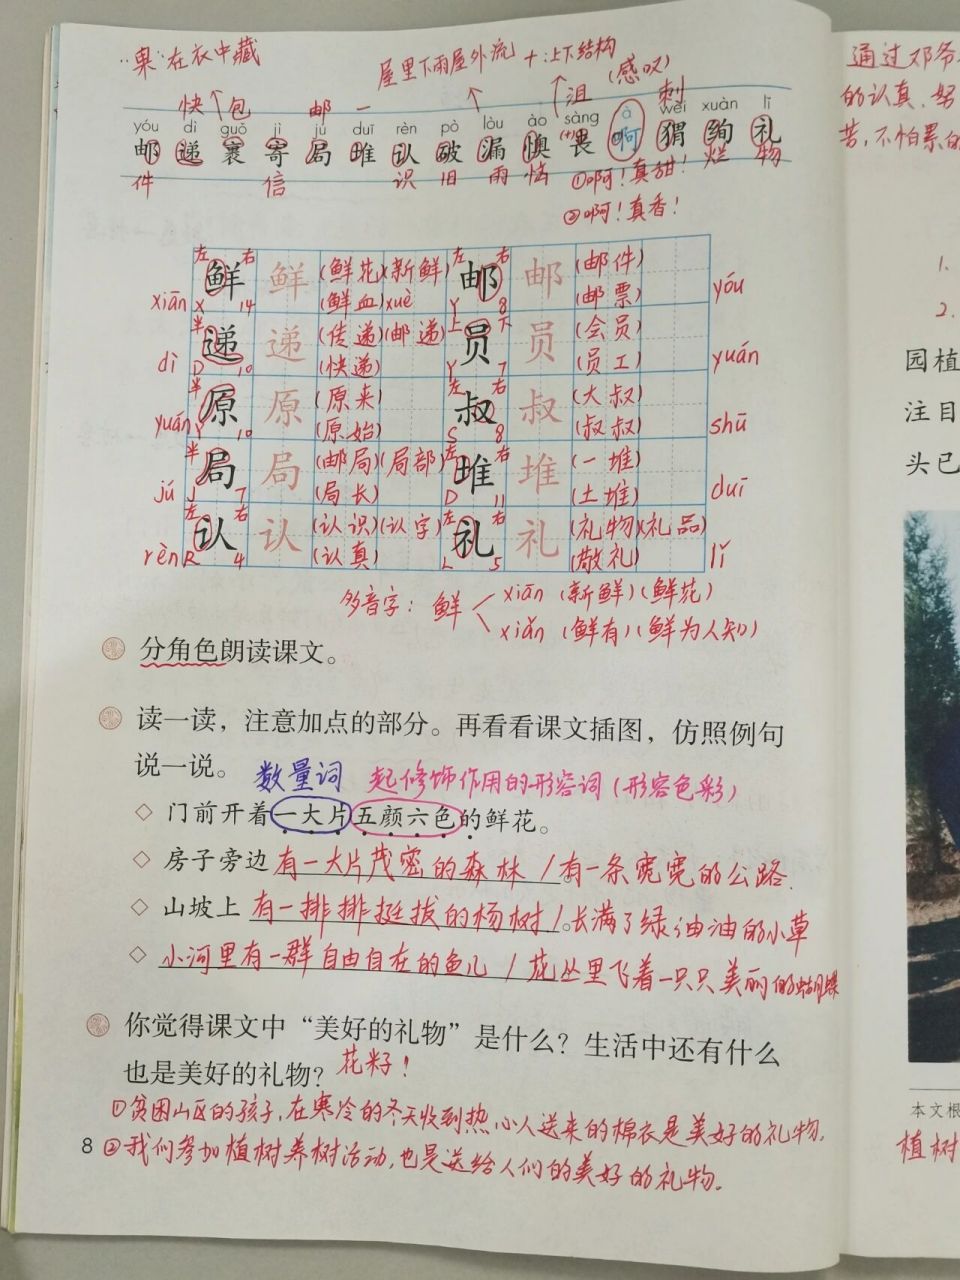 "果"在衣中藏
屋里下雨屋外流 +:上下结构
快 包 邮 一 沮 (感叹) 刺
yóu dì guǒ jì jú duī rèn pò lòu ào sàng à wèi xuàn lǐ
邮 递 裹 寄 局 堆 认 破 漏 懊 丧 啊 猬 绚 礼
件 信 识 旧 雨 恼 ①啊!真甜! 烂 物
②啊!真香!
左 鲜 右 鲜 (鲜花)(新鲜) 左 邮 右 邮 (邮件)
xiān X 14 (鲜血)xuè Y 8 (邮票) yóu
半 递 递 (传递)(邮递) 上 员 下 员 (会员)
dì D 10 (快递) Y 7 (员工) yuán
半 原 原 (原来) 左 叔 右 叔 (大叔)
yuán Y 10 (原始) S 8 (叔叔) shū
半 局 局 (邮局)(局部) 左 堆 右 堆 (一堆)
jú J 7 (局长) D 11 (土堆) duī
左 认 右 认 (认识)(认字) 左 礼 右 礼 (礼物)(礼品)
rèn R 4 (认真) L 5 (敬礼) lǐ
多音字:鲜 xiān (新鲜)(鲜花)
xiǎn (鲜有)(鲜为人知)
分角色朗读课文。
读一读,注意加点的部分。再看看课文插图,仿照例句
说一说。 数量词 起修饰作用的形容词(形容色彩)
◇ 门前开着一大片五颜六色的鲜花。
◇ 房子旁边有一大片茂密的森林。/有一条宽宽的公路.
◇ 山坡上有一排排挺拔的杨树/。长满了绿油油的小草
◇ 小河里有一群自由自在的鱼儿 / 花丛里飞着一只只美丽的蝴蝶
你觉得课文中"美好的礼物"是什么?生活中还有什么
也是美好的礼物? 花籽!
①贫困山区的孩子,在寒冷的冬天收到热心人送来的棉衣是美好的礼物,
8 ②我们参加植树养树活动,也是送给人们的美好的礼物。
通过邓爷
的认真、努
苦,不怕累的
1.
2.
园植
注目
头已
本文根
植树